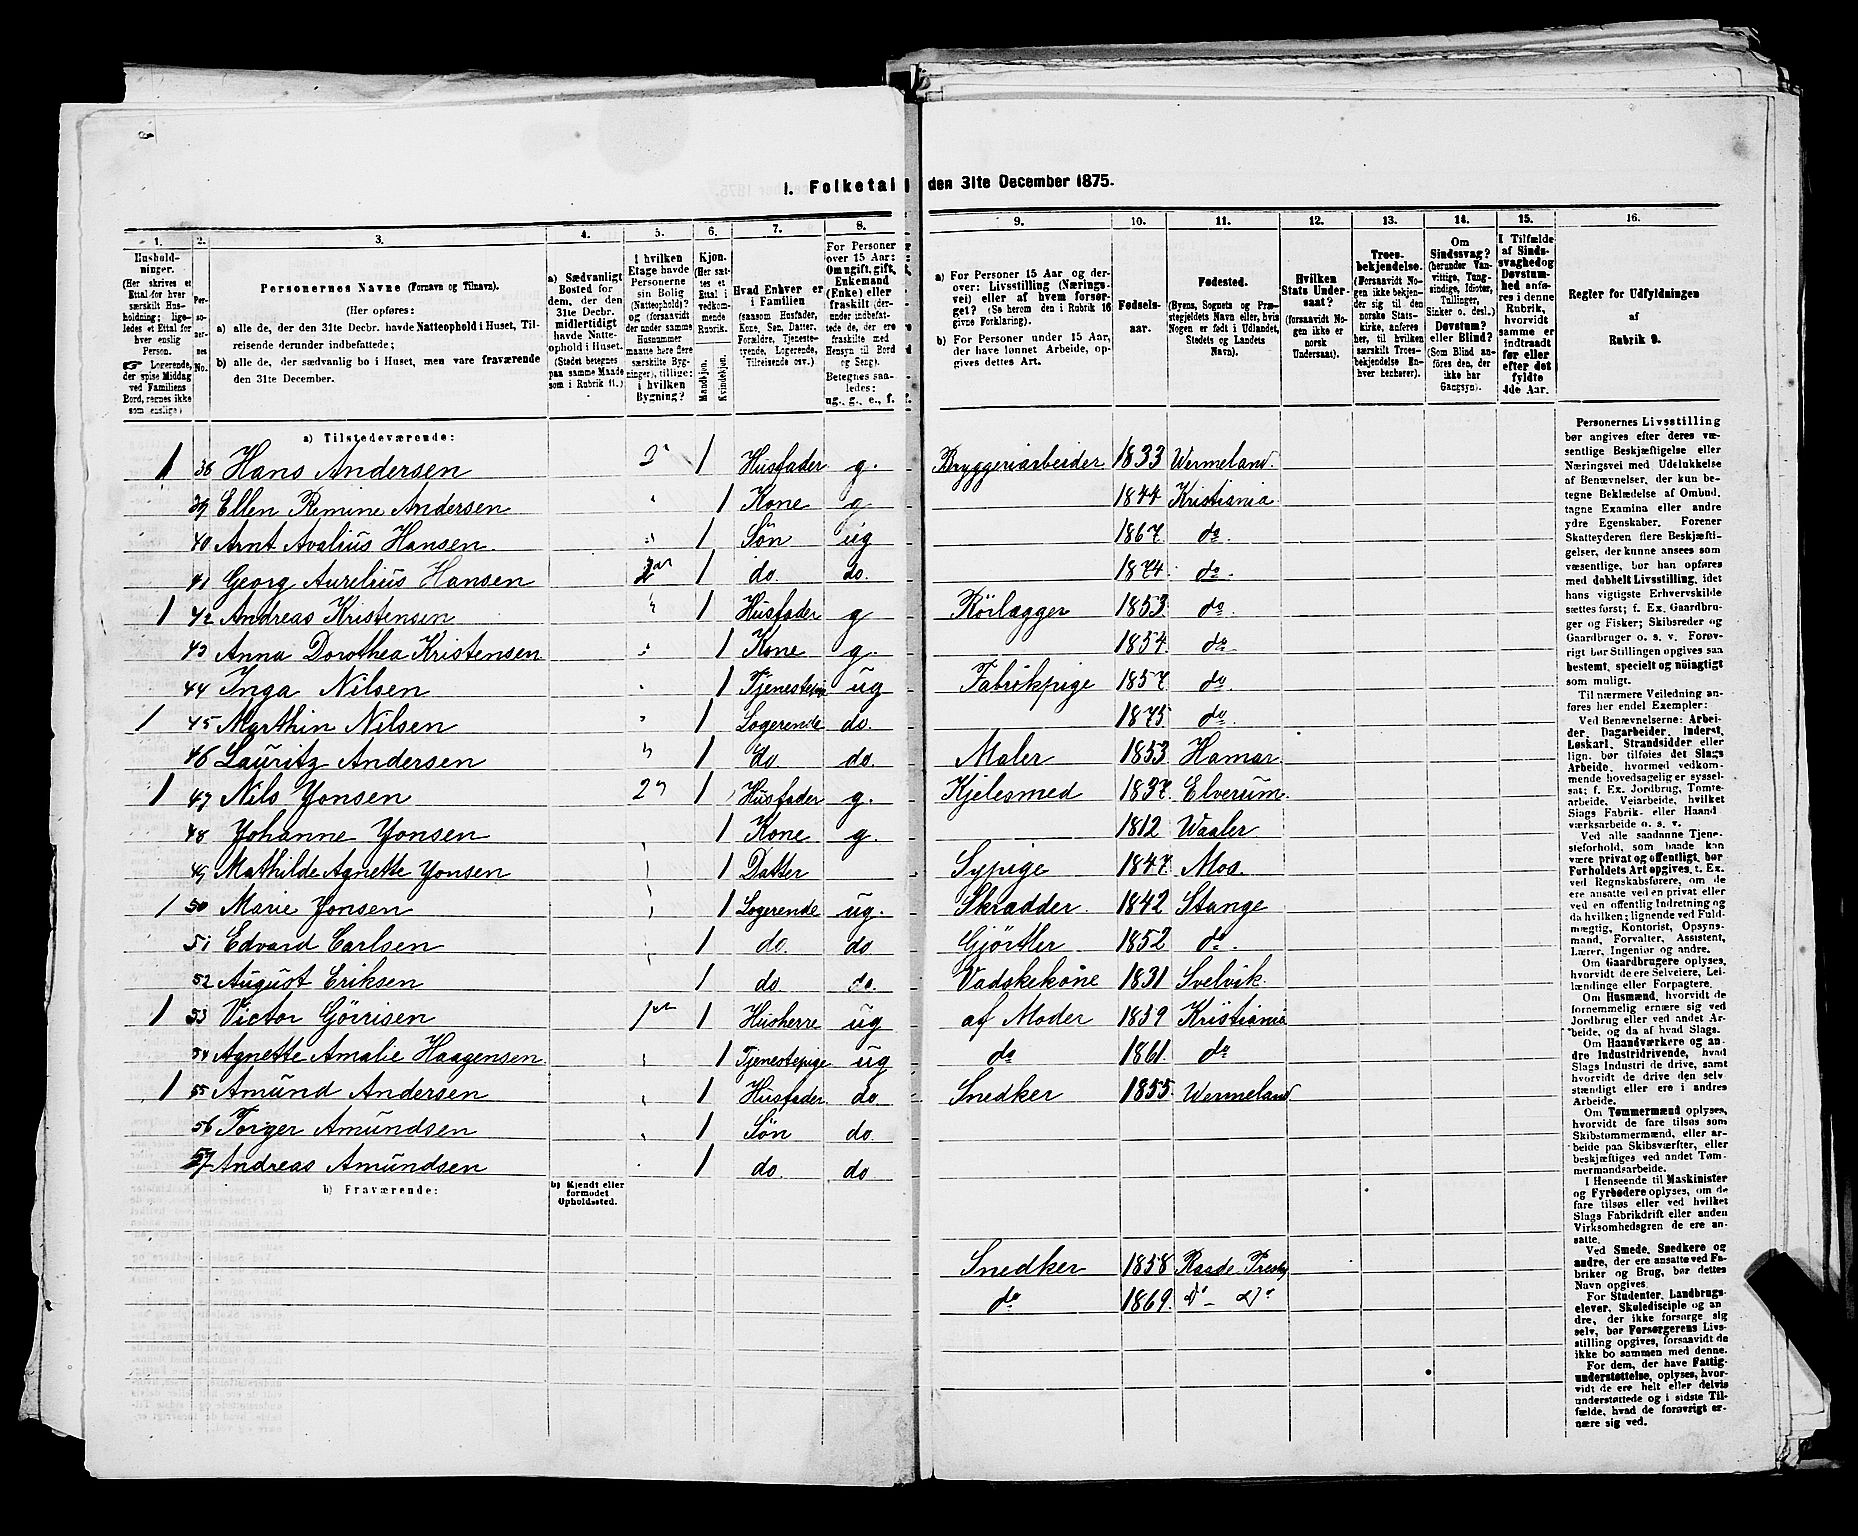 1. Folketal den 31te December 1875.
1. 2. 3. 4. 5. 6. 7. 8. 9. 10. 11. 12. 13. 14. 15. 16.
Husholdninger. (Her skrives et Ettal for hver særskilt Husholdning; ligeledes et Ettal for hver enslig Person. ☞ Logerende, der spise Middag ved Familiens Bord, regnes ikke som enslige)
Personernes No.
Personernes Navne (Fornavn og Tilnavn).
(Her opføres:
a) alle de, der den 31te Decbr. havde Natteophold i Huset, Tilreisende derunder indbefattede;
b) alle de, der sædvanlig bo i Huset, men vare fraværende den 31te December.
a) Sædvanligt Bosted for dem, der den 31te Decbr. midlertidigt havde Natteophold i Huset. (Stedet betegnes paa samme Maade som i Rubrik 11.)
I hvilken Etage havde Personerne sin Bolig (Natteophold)? og (forsaavidt der under samme Husnummer maatte høre flere særskilte Bygninger), tillige: i hvilken Bygning?
Kjøn. (Her sættes et Ettal i vedkommende Rubrik. Mandkjøn. Kvindekjøn.
Hvad Enhver er i Familien (saasom Husfader, Kone, Søn, Datter, Forældre, Tjenestetyende, Logerende, Tilreisende osv.)
For Personer over 15 Aar: Om ugift, gift, Enkemand (Enke) eller fraskilt (derindbefattede de, der ere fraskilte med Hensyn til Bord og Seng). Betegnes saaledes: ug., g., e., f.
a) For Personer 15 Aar og derover: Livsstilling (Næringsvei) eller af hvem forsørget? (Se herom den i Rubrik 16 givne Forklaring).
b) For Personer under 15 Aar, der have lønnet Arbeide, opgives dettes Art.
Fødselsaar.
Fødested. (Byens, Sognets og Præstegjeldets Navn eller, hvis Nogen er født i Udlandet, Stedets og Landets Navn).
Hvilken Stats Undersaat? (forsaavidt Nogen ikke er norsk Undersaat).
Troesbekjendelse. (Forsaavidt Nogen ikke bekjender sig til den norske Statskirke, anføres her, til hvilken særskilt Troesbekjendelse Enhver henhører).
Om Sindssvag? (herunder Vanvittige, Tungsindige, Idioter, Tullinger, Sinker o. desl.) Døvstum? eller Blind? (Som Blind anføres den, der ikke har Gangsyn).
I Tilfælde af Sindssvaghed og Døvstumhed anføres i denne Rubrik, hvorvidt samme er indtraadt før eller efter det fyldte 4de Aar.
Regler for Udfyldningen af Rubrik 9.
a) Tilstedeværende:
1 38 Hans Andersen 2 1 Husfader g. Bryggeriarbeider 1833 Wermeland.
39 Ellen Remine Andersen " 1 Kone g 1844 Kristiania
40 Arnt Avalius Hansen " 1 Søn ug 1867 do
41 Georg Aurelius Hansen 2 1 do. do. 1874 do
1 42 Andreas Kristensen " 1 Husfader g Rörlægger 1853 do
43 Anna Dorothea Kristensen " 1 Kone g. 1854 do
44 Inga Nilsen " 1 Tjenestepige ug Fabrikpige 1857 do
1 45 Marthin Nilsen " 1 Logerende do. 1875 do
46 Lauritz Andersen " 1 do do. Maler 1853 Hamar
1 47 Nils Yonsen 2 1 Husfader g. Kjelesmed 1837 Elverum
48 Yohanne Yonsen 1 Kone g. 1812 Waaler
49 Mathilde Agnette Yonsen 1 Datter Sypige 1847 Mos.
1 50 Marie Yonsen 1 Logerende ug. Skradder 1842 Stange
51 Edvard Carlsen 1 do. do Gjörtler 1852 do
52 August Eriksen 1 do do. Vadskekone 1831 Svelvik.
1 53 Victor Görrisen 1 1 Husherre ug af Moder 1859 Kristiania
54 Agnette Amalie Haagensen 1 Tjenestepige ug do 1861 do
1 55 Amund Andersen 1 Husfader do. Snedker 1855 Wermeland
56 Torger Amundsen 1 Søn do.
57 Andreas Amundsen 1 do. do
b) Fraværende:
b) Kjendt eller formodet Opholdssted.
Snedker 1858 Raade Prestg
do 1869 do - do
Personernes Livsstilling bør angives efter deres væsentlige Beskjæftigelse eller Næringsvei med Udelukkelse af Benævnelser, der kun betegne Beklædelse af Ombud, tagne Examina eller andre ydre Egenskaber. Forener Skatteyderen flere Beskjæftigelser, der kunne ansees som væsentlige, bør han opføres med dobbelt Livsstilling, idet hans vigtigste Erhvervskilde sættes først; f. Ex. Gaardbruger og Fisker; Skibsreder og Gaardbruger o. s. v. Forøvrigt bør Stillingen opgives saa bestemt, specielt og nöiagtigt som muligt.
Til nærmere Veiledning anføres her endel Exempler:
Ved Benævnelserne: Arbeider, Dagarbeider, Inderst, Løskarl, Strandsidder eller lign. bør tilføies det Slags Arbeide, hvormed vedkommende hovedsagelig er sysselsat; f. Ex. Jordbrug, Tomtearbeide, Veiarbeide, hvilket Slags Fabrik- eller Haandværksarbeide o. s. v.
Ved alle saadanne Tjenesteforhold, som baade kan være privat og offentligt, bør Forholdets Art opgives, t. Ex. ved Regnskabsførere, om de ere ansatte ved en privat eller ved en offentlig Indretning og da hvilken; lignende ved Fuldmægtig, Kontorist, Opsynsmand, Forvalter, Assistent, Lærer, Ingeniør og andre.
Om Gaardbrugere oplyses, hvorvidt de ere Selveiere, Leilændinge eller Forpagtere.
Om Husmænd, hvorvidt de fornemmelig ernære sig ved Jordbrug eller ved andet Arbeide, og da af hvad Slags.
Om Haandværkere og andre Industridrivende, hvad Slags Industri de drive, samt hvorvidt de drive den selvstændigt eller ere i andres Arbeide.
Om Tømmermænd oplyses, hvorvidt de fare tilsøs som Skibstømmermænd, eller arbeide paa Skibsværfter, eller beskjæftiges ved andet Tømmermandsarbeide.
I Henseende til Maskinister og Fyrbødere oplyses, om de fare tilsøs eller ved hvilket Slags Fabrikdrift eller anden Virksomhedsgren de ere ansatte.
Ved Smede, Snedkere og andre, der ere ansatte ved Fabriker og Brug, bør dettes Navn opgives.
For Studenter, Landbrugselever, Skoledisciple og andre, der ikke forsørge sig selv, bør Forsørgerens Livsstilling opgives, forsaavidt de ikke bo sammen med denne.
For dem, der have Fattigunderstøttelse, oplyses, hvorvidt de ere helt eller delvis understøttede og i sidste Tilfælde, hvad de forøvrigt ernære sig ved.